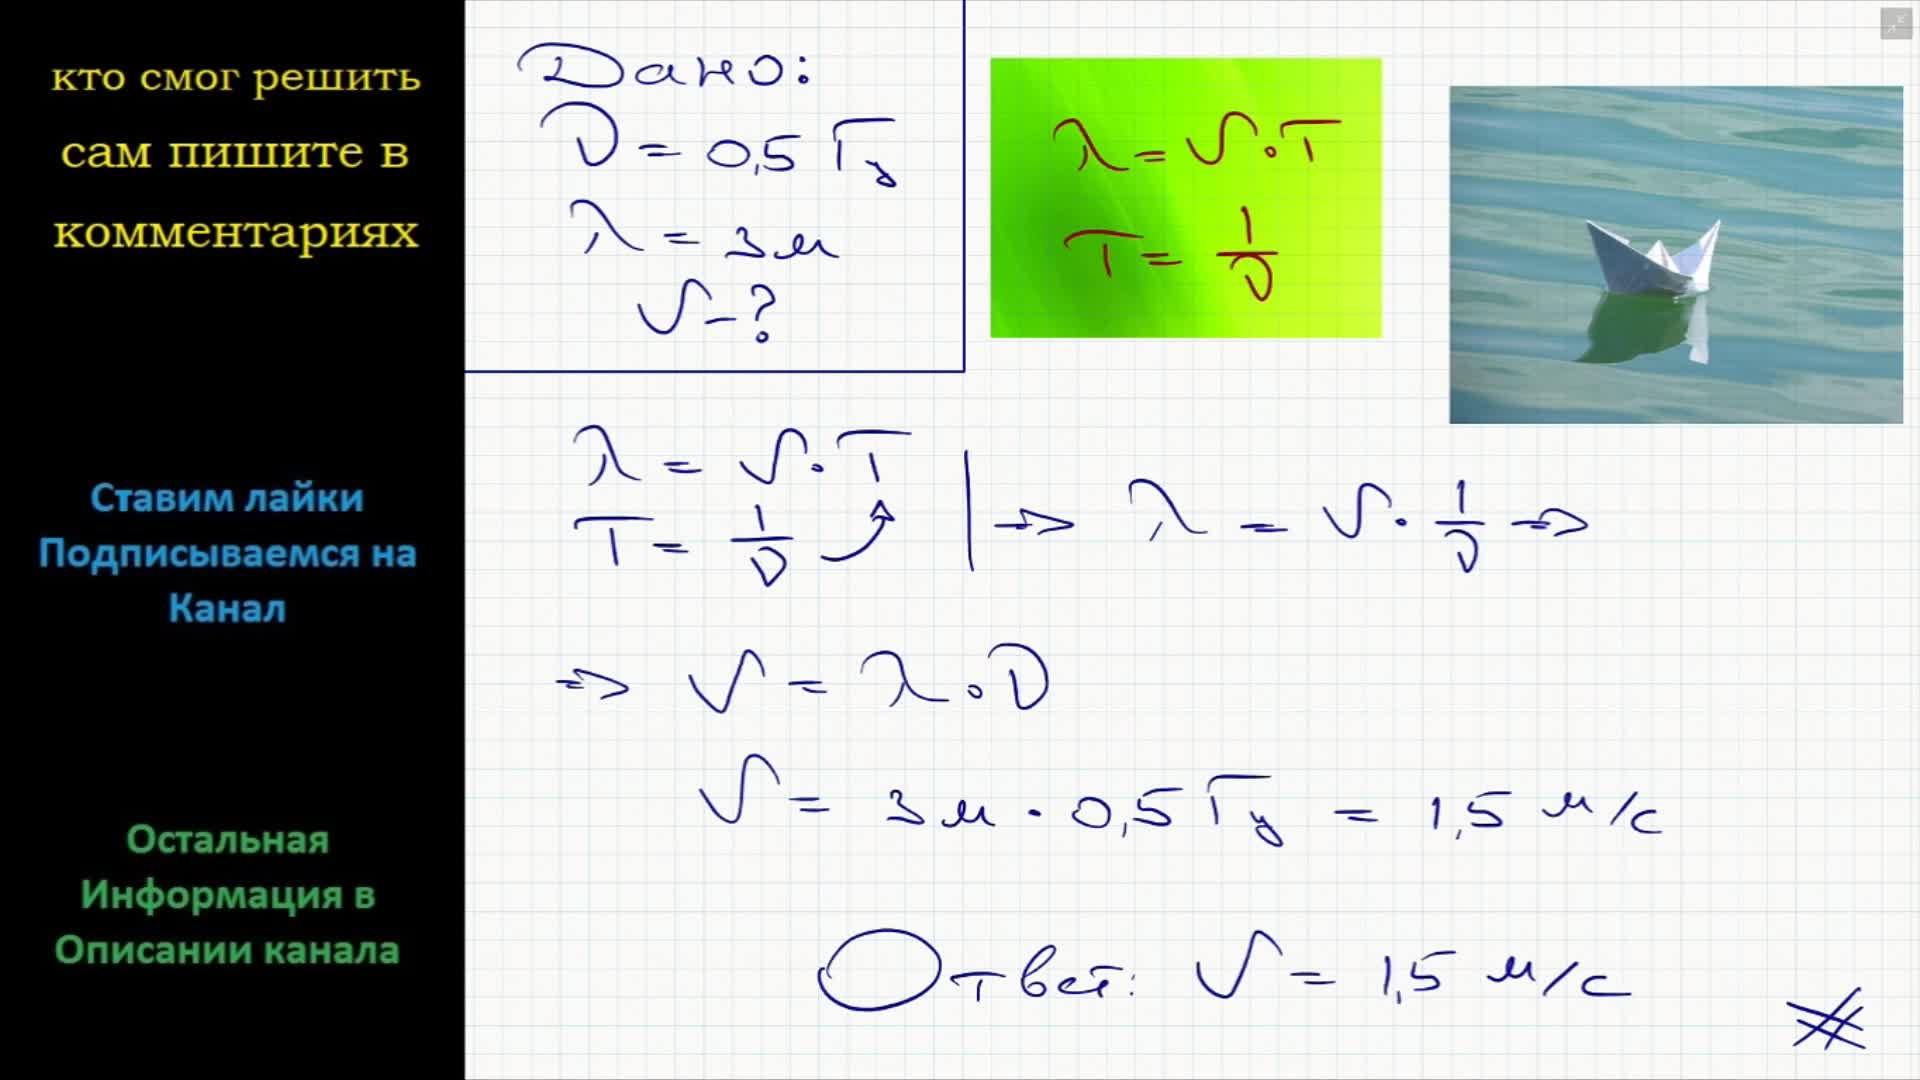 кто смог решить
сам пишите в
комментариях
Ставим лайки
Подписываемся на
Канал
Остальная
Информация в
Описании канала
Дано:
ν = 0,5 Гц
λ = 3 м
v - ?
λ = v · T
T = 1/ν
λ = v · T
T = 1/ν
⇒ λ = v · 1/ν ⇒
⇒ v = λ · ν
v = 3 м · 0,5 Гц = 1,5 м/с
Ответ: v = 1,5 м/с